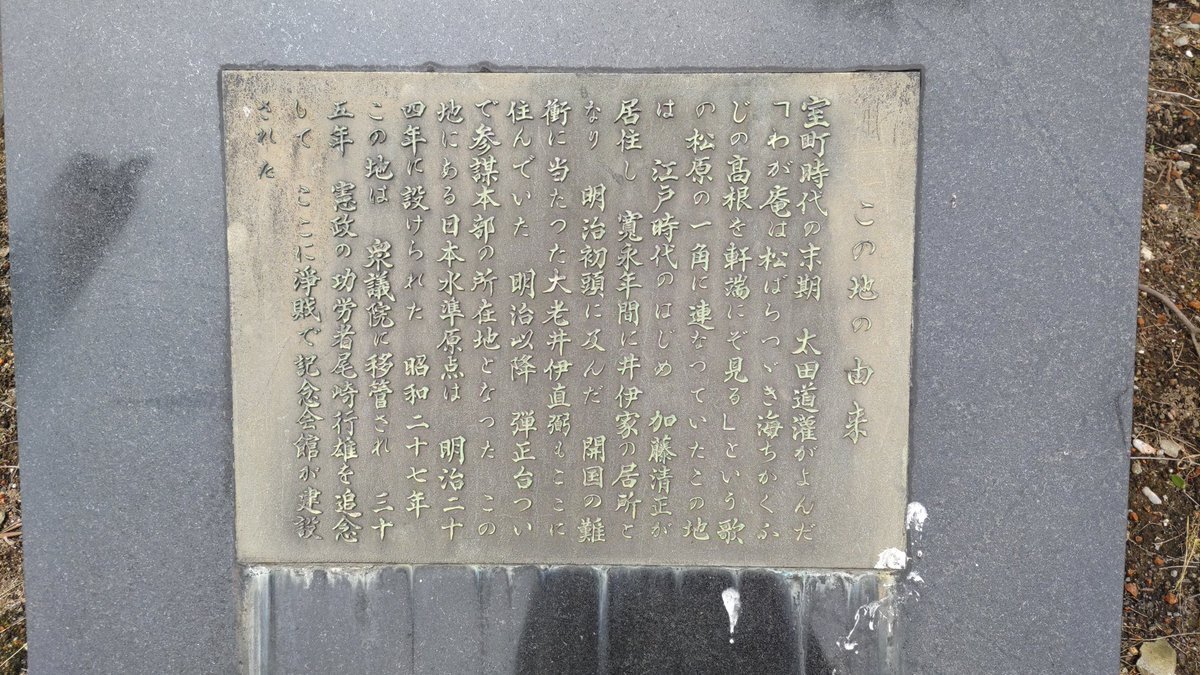 この地の由来
室町時代の末期　太田道灌がよんだ
「わが庵は松ばらつゞき海ちかくふ
じの髙根を軒端にぞ見る」という歌
の松原の一角に連なつていたこの地
は　江戸時代のはじめ　加藤清正が
居住し　寛永年間に井伊家の居所と
なり　明治初頭に及んだ　開国の難
衝に当たつた大老井伊直弼もここに
住んでいた　明治以降　弾正台つい
で参謀本部の所在地となつた　この
地にある日本水準原点は　明治二十
四年に設けられた　昭和二十七年
この地は　衆議院に移管され　三十
五年　憲政の功労者尾崎行雄を追念
して　ここに淨賊で記念会館が建設
された